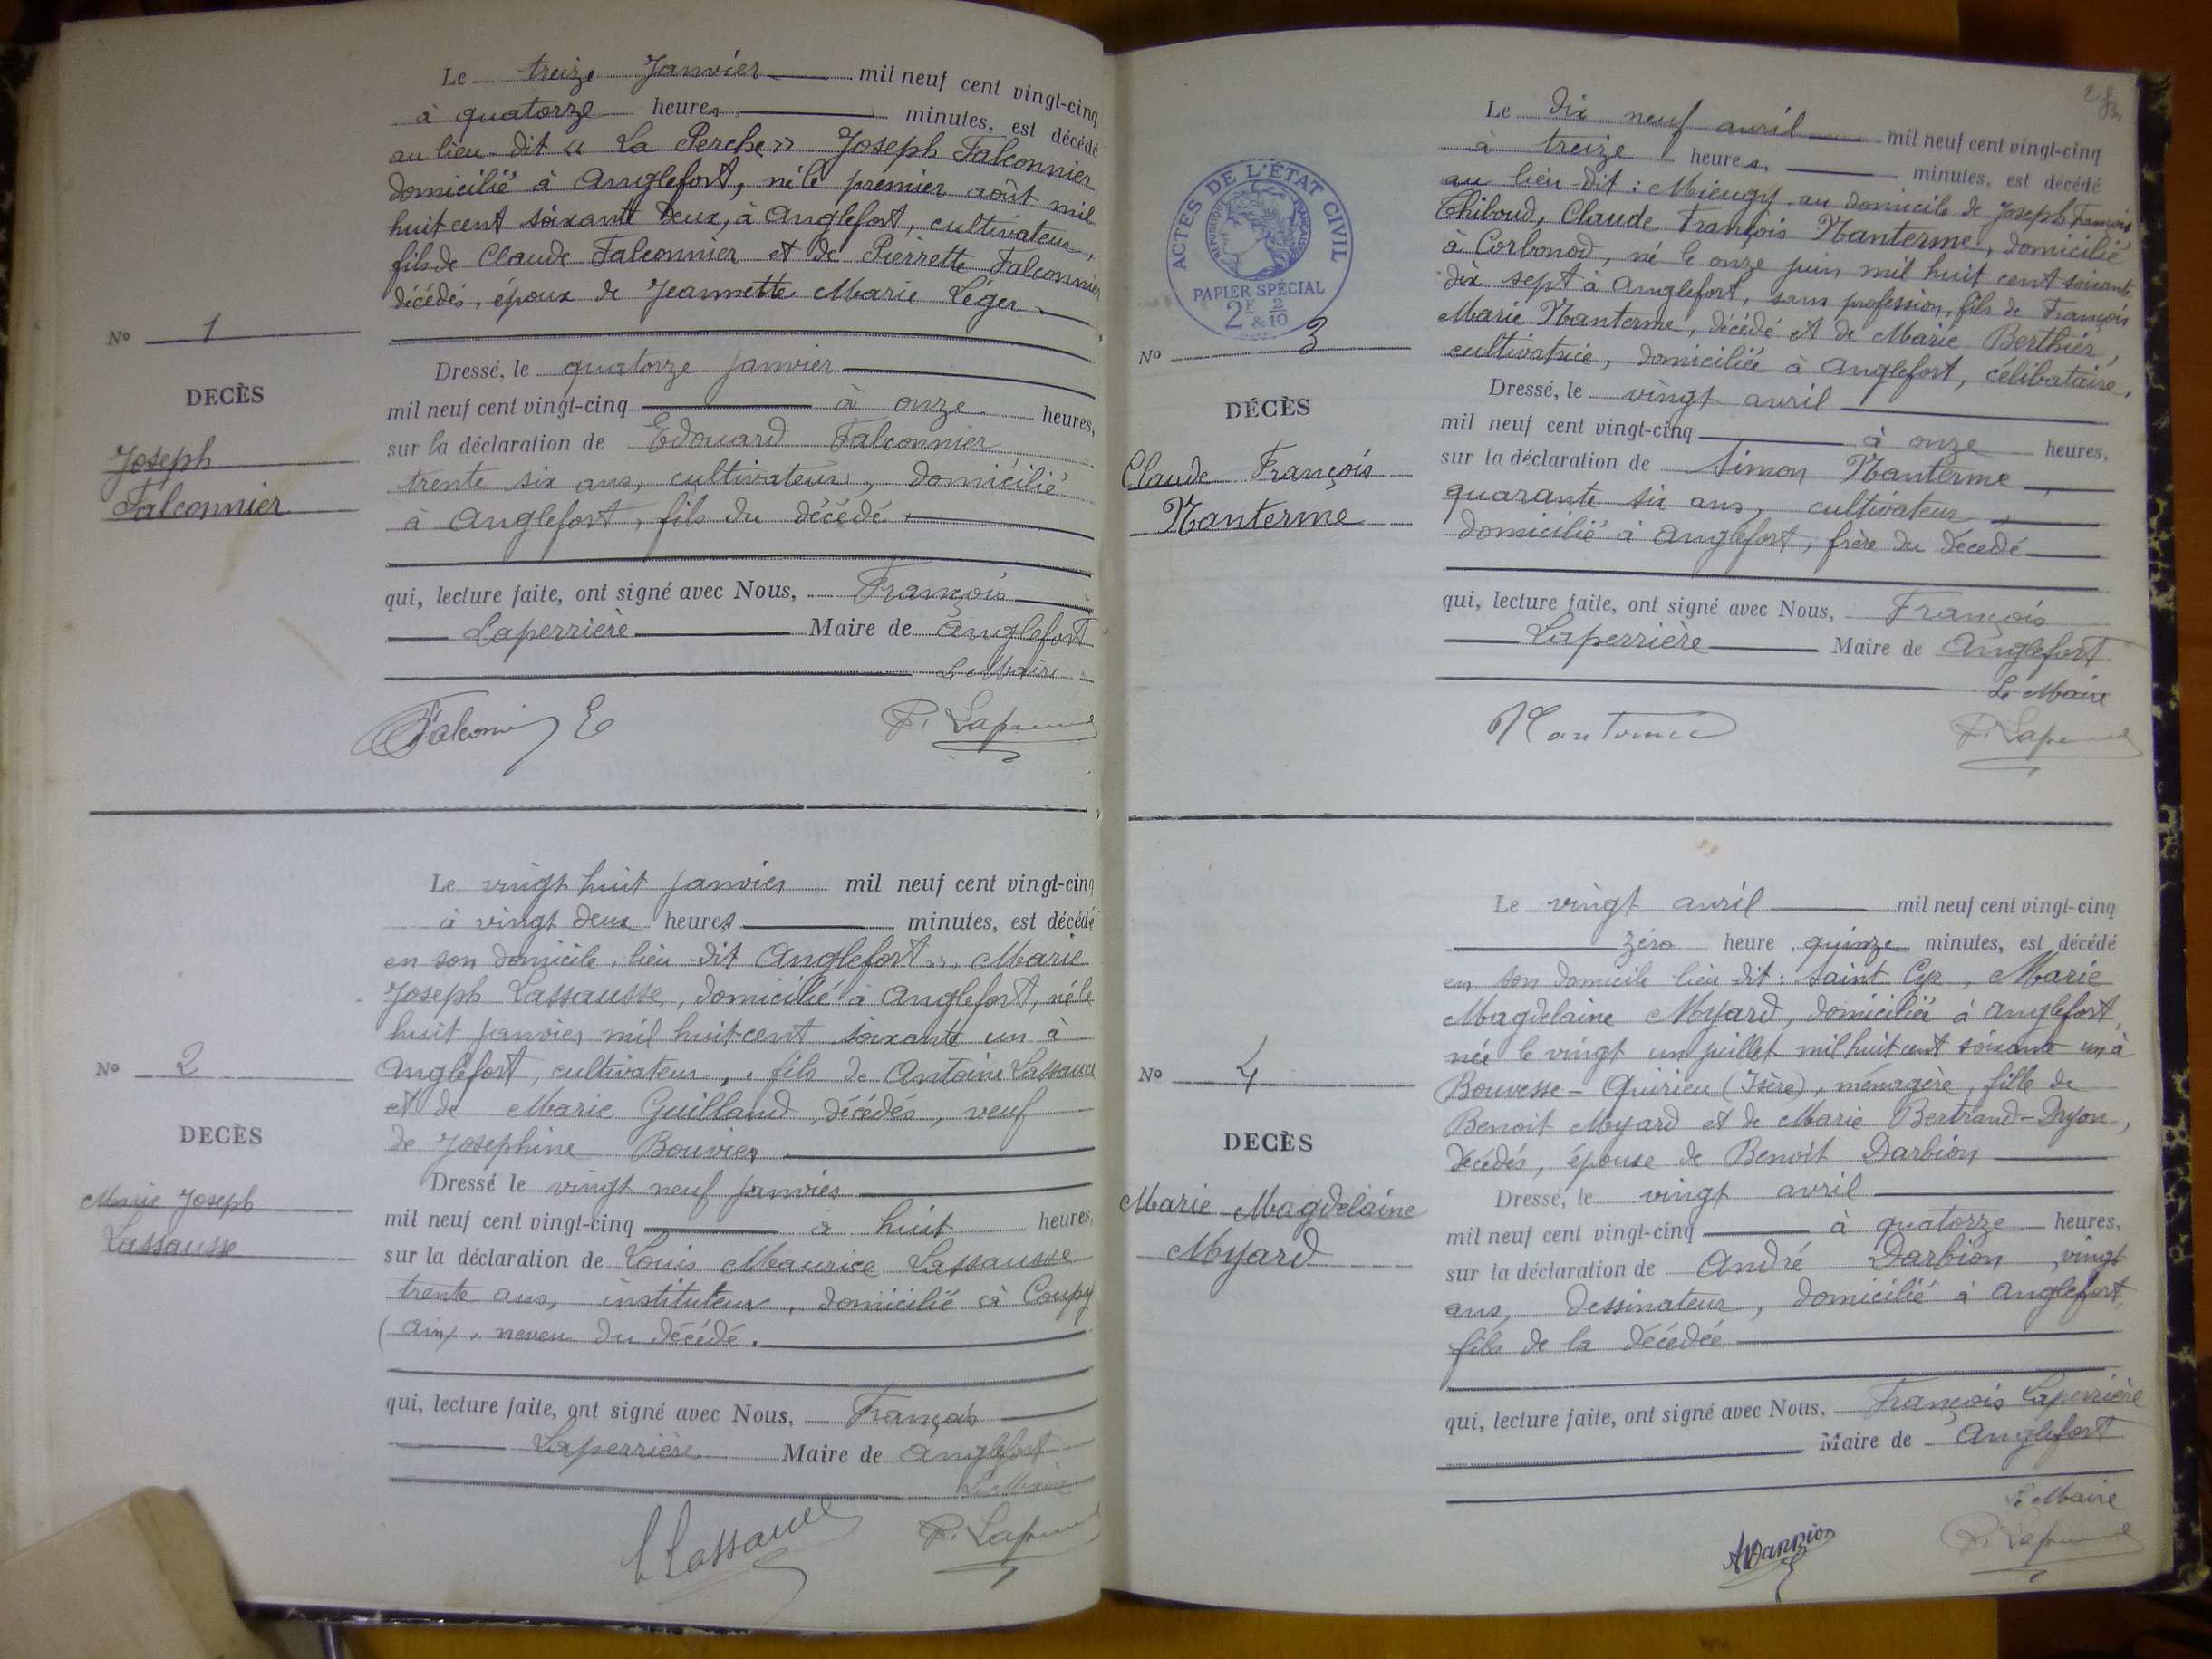 Le treize Janvier mil neuf cent vingt-cinq
à quatorze heures, minutes, est décédé
au lieu-dit « La Perche » Joseph Falconnier
domicilié à Anglefort, né le premier août mil
huit cent soixante deux, à Anglefort, cultivateur,
fils de Claude Falconnier et de Pierrette Falconnier
décédés, époux de Jeannette Marie Léger
No 1
Dressé, le quatorze janvier
DECÈS
mil neuf cent vingt-cinq à onze heures,
Joseph
Falconnier
sur la déclaration de Edouard Falconnier
trente six ans, cultivateur, domicilié
à Anglefort, fils du décédé
qui, lecture faite, ont signé avec Nous, François
Laperrière Maire de Anglefort
Le Maire
Le vingt huit janvier mil neuf cent vingt-cinq
à vingt deux heures minutes, est décédé
en son domicile, lieu-dit Anglefort », Marie
Joseph Lassausse, domicilié à Anglefort, né le
huit janvier mil huit cent soixante un à
Anglefort, cultivateur, fils de Antoine Lassauce
et de Marie Guilland, décédés, veuf
de Josephine Bouvier
No 2
DECÈS
Marie Joseph
Lassausse
Dressé le vingt neuf janvier
mil neuf cent vingt-cinq à huit heures,
sur la déclaration de Louis Maurice Lassausse
trente ans, instituteur, domicilié à Coupy
(Ain), neveu du décédé.
qui, lecture faite, ont signé avec Nous, François
Laperrière Maire de Anglefort
Le Maire
L Lassausse
Le dix neuf avril mil neuf cent vingt-cinq
à treize heures, minutes, est décédé
au lieu-dit : Mieugy, au domicile de Joseph François
Thiboud, Claude François Nanterme, domicilié
à Corbonod, né le onze juin mil huit cent soixante
dix sept à Anglefort, sans profession, fils de François
Marie Nanterme, décédé et de Marie Berthier,
cultivatrice, domiciliée à Anglefort, célibataire.
ACTES DE L'ÉTAT CIVIL
RÉPUBLIQUE FRANÇAISE
PAPIER SPÉCIAL
2F & 2/10
No 3
DÉCÈS
Claude François
Nanterme
Dressé, le vingt avril
mil neuf cent vingt-cinq à onze heures,
sur la déclaration de Simon Nanterme
quarante six ans, cultivateur,
domicilié à Anglefort, frère du décedé
qui, lecture faite, ont signé avec Nous, François
Laperrière Maire de Anglefort
Le Maire
Nanterme
Le vingt avril mil neuf cent vingt-cinq
zéro heure quinze minutes, est décédé
en son domicile lieu dit : Saint Cyr, Marie
Magdelaine Myard, domiciliée à Anglefort,
née le vingt un juillet mil huit cent soixante un à
Bouvesse-Quirieu (Isère), ménagère, fille de
Benoit Myard et de Marie Bertrand-Dryon,
décédés, épouse de Benoît Darbion
No 4
DECÈS
Marie Magdelaine
Myard
Dressé, le vingt avril
mil neuf cent vingt-cinq à quatorze heures,
sur la déclaration de André Darbion, vingt
ans, dessinateur, domicilié à Anglefort,
fils de la décédée
qui, lecture faite, ont signé avec Nous, François Laperrière
Maire de Anglefort
Le Maire